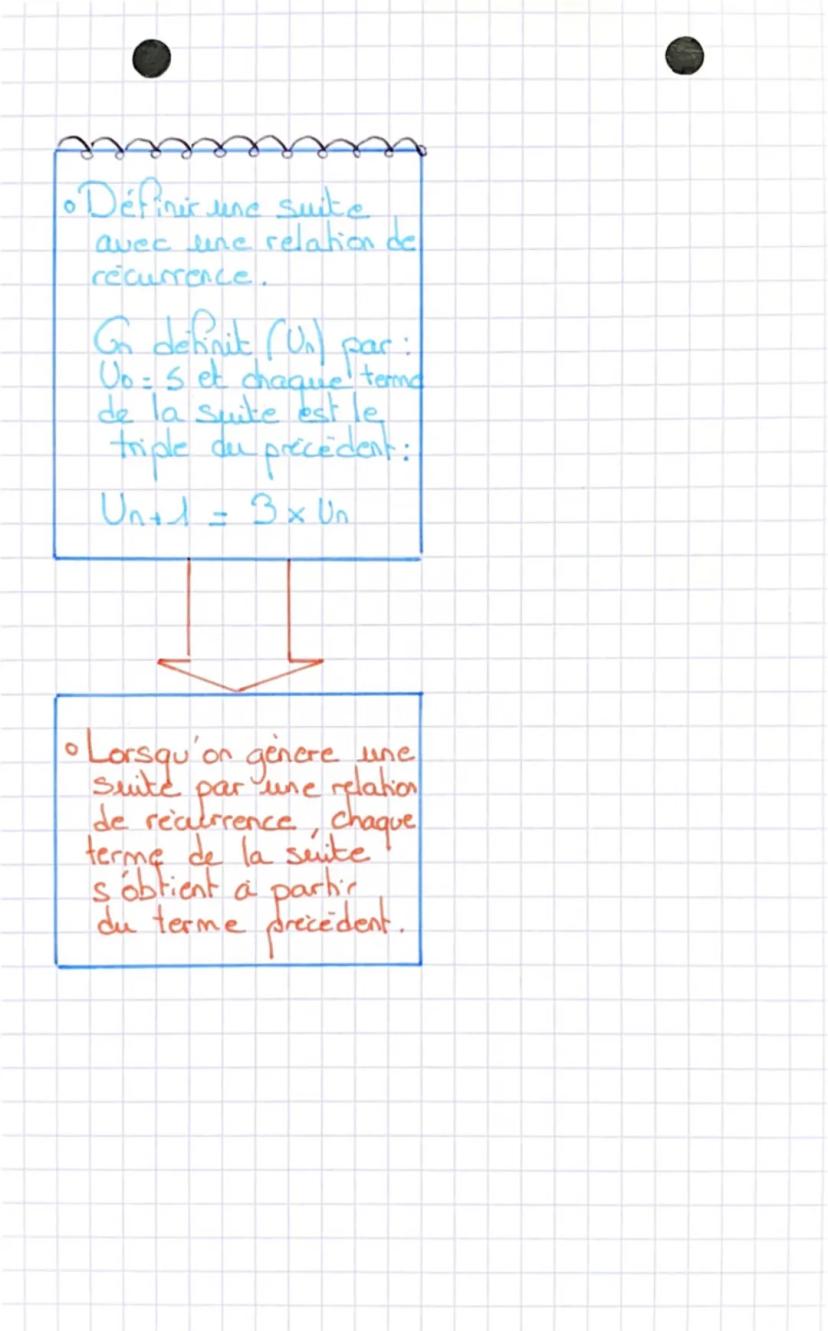 ° Définir une suite
avec une relation de
récurrence.
On définit (Un) par :
U0 = 5 et chaque terme
de la suite est le
triple du précédent :
Un+1 = 3 × Un
° Lorsqu'on génère une
suite par une relation
de récurrence, chaque
terme de la suite
s'obtient à partir
du terme précédent.